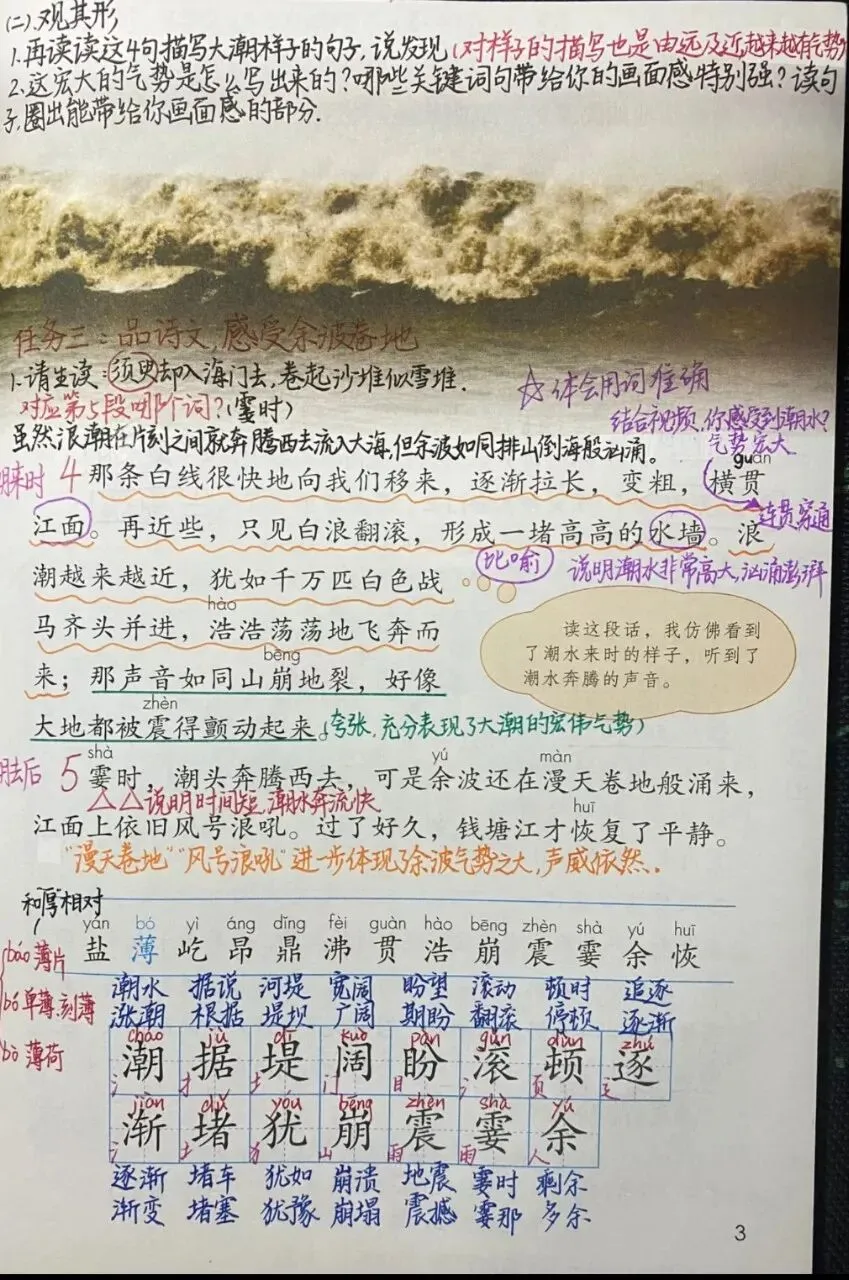 (二).观其形
1.再读读这4句描写大潮样子的句子,说发现(对样子的描写也是由远及近,越来越有气势)
2.这宏大的气势是怎么写出来的?哪些关键词句带给你的画面感特别强?读句
子,圈出能带给你画面感的部分.
任务三:品诗文,感受余波卷地
1.请生读:须臾却入海门去,卷起沙堆似雪堆.
☆体会用词准确
对应第5段哪个词?(霎时)
结合视频,你感受到潮水?
气势宏大
虽然浪潮在片刻之间就奔腾西去流入大海,但余波如同排山倒海般汹涌。
guàn
潮来时 4 那条白线很快地向我们移来,逐渐拉长,变粗,横贯
连贯穿通
江面。再近些,只见白浪翻滚,形成一堵高高的水墙。浪
比喻 说明潮水非常高大,汹涌澎湃
潮越来越近,犹如千万匹白色战
hào
马齐头并进,浩浩荡荡地飞奔而
bēng
来;那声音如同山崩地裂,好像
zhèn
大地都被震得颤动起来。(夸张,充分表现了大潮的宏伟气势)
读这段话,我仿佛看到
了潮水来时的样子,听到了
潮水奔腾的声音。
shà yú màn
潮去后 5 霎时,潮头奔腾西去,可是余波还在漫天卷地般涌来,
△△说明时间短,潮水奔流快
huī
江面上依旧风号浪吼。过了好久,钱塘江才恢复了平静。
"漫天卷地""风号浪吼"进一步体现了余波气势之大,声威依然.
和"厚"相对
yán bó yì áng dǐng fèi guàn hào bēng zhèn shà yú huī
盐 薄 屹 昂 鼎 沸 贯 浩 崩 震 霎 余 恢
báo 薄片
bó 单薄.刻薄
bò 薄荷
潮水 据说 河堤 宽阔 盼望 滚动 顿时 追逐
涨潮 根据 堤坝 广阔 期盼 翻滚 停顿 逐渐
cháo jù dī kuò pàn gǔn dùn zhú
潮 据 堤 阔 盼 滚 顿 逐
氵 扌 土 门 目 氵 页 辶
jiàn dǔ yóu bēng zhèn shà yú
渐 堵 犹 崩 震 霎 余
氵 土 犭 山 雨 雨 人
逐渐 堵车 犹如 崩溃 地震 霎时 剩余
渐变 堵塞 犹豫 崩塌 震撼 霎那 多余
3